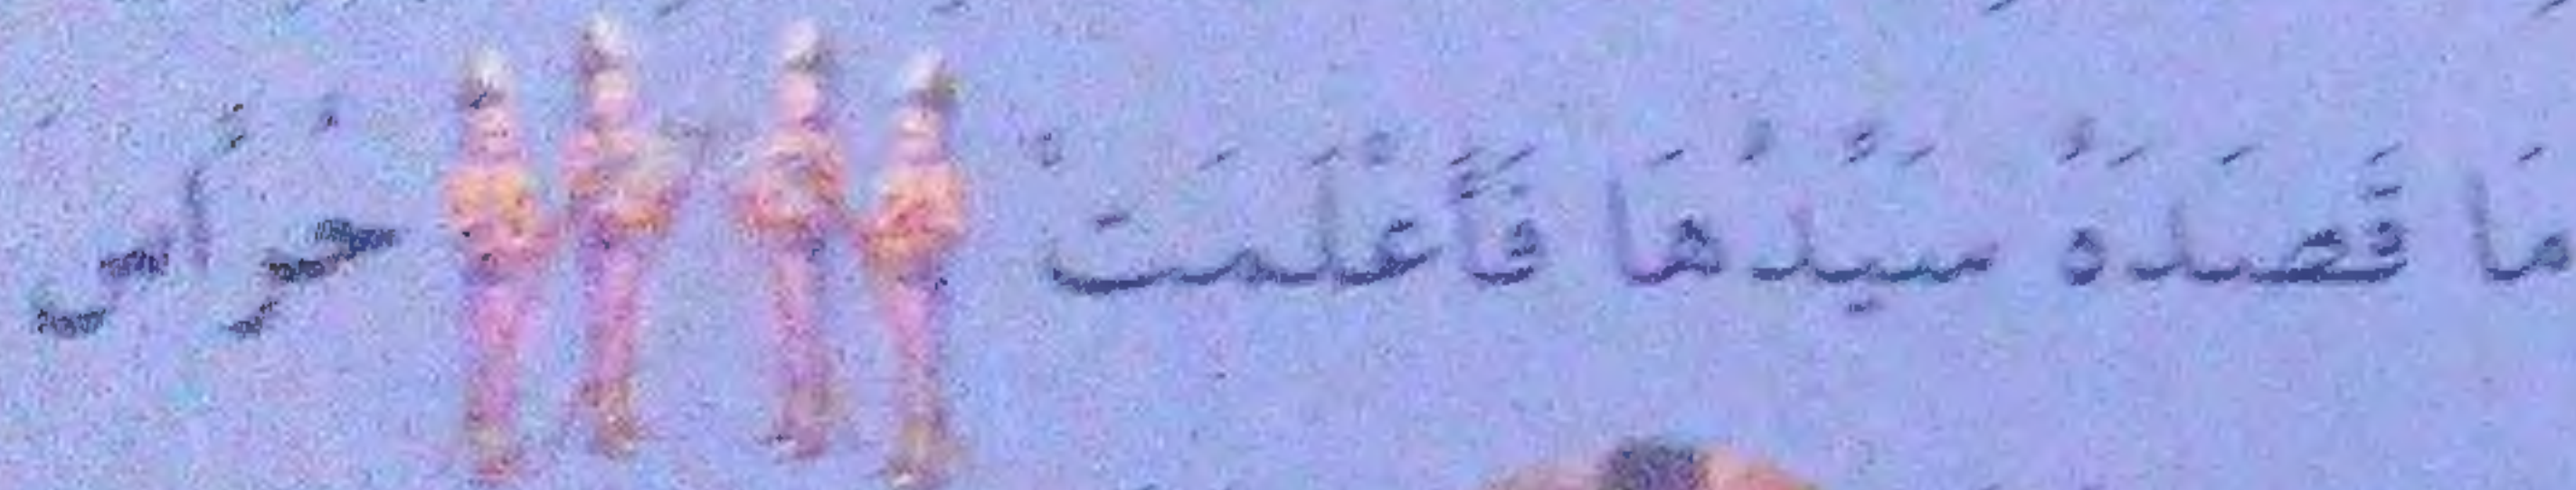 مَا قَصَدَهُ سَيِّدُهَا فَأَعْلَمَتْ حُرَّاس